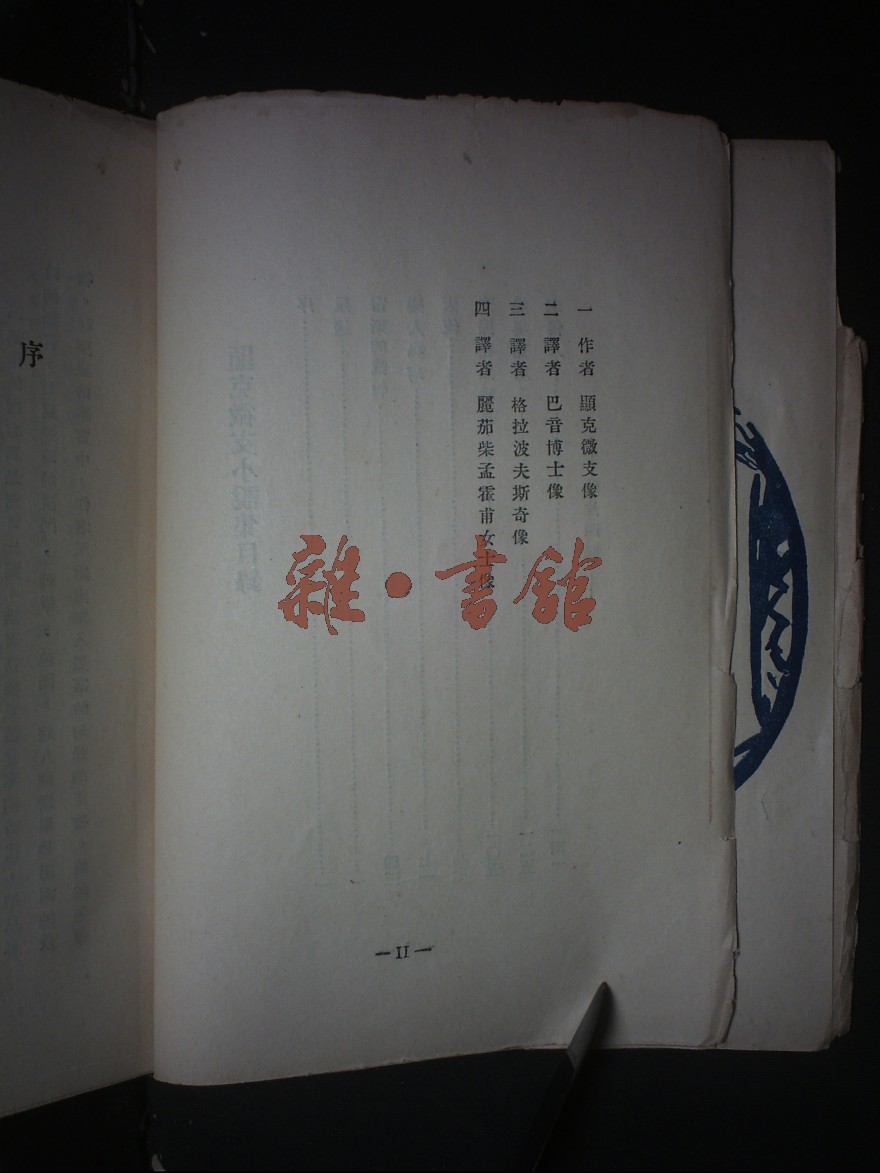 一 作者 顯克微支像
二 譯者 巴音博士像
三 譯者 格拉波夫斯奇像
四 譯者 麗茄柴孟霍甫女士像
—II—
序
雜·書館